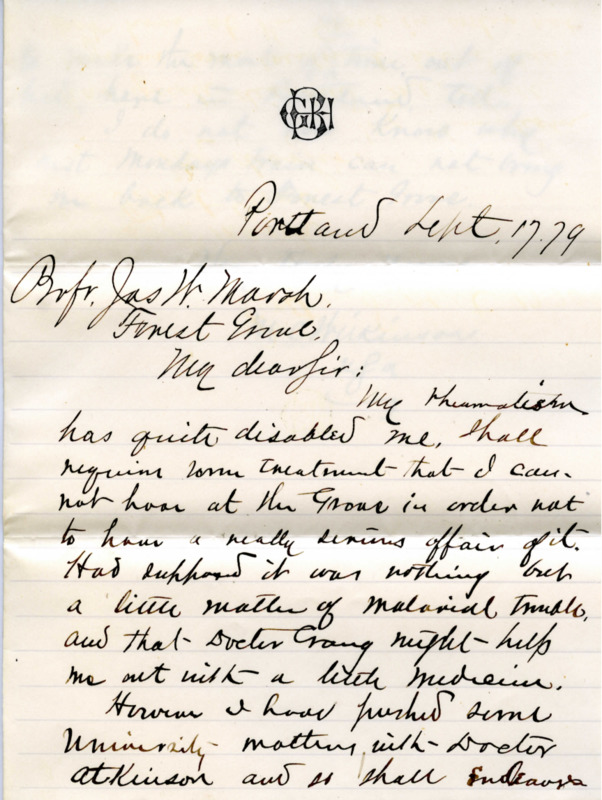 Portland Sept. 17. 79
Profr. Jas W. Marsh.
Forest Grove.
My dear Sir:
My rheumatism
has quite disabled me. Shall
require some treatment that I can-
not have at the Grove in order not
to have a really serious affair of it.
Had supposed it was nothing but
a little matter of malarial trouble,
and that Doctor might help
me out with a little medicine.
However I have pushed some
University matters with Doctor
Atkinson and so shall endeavor